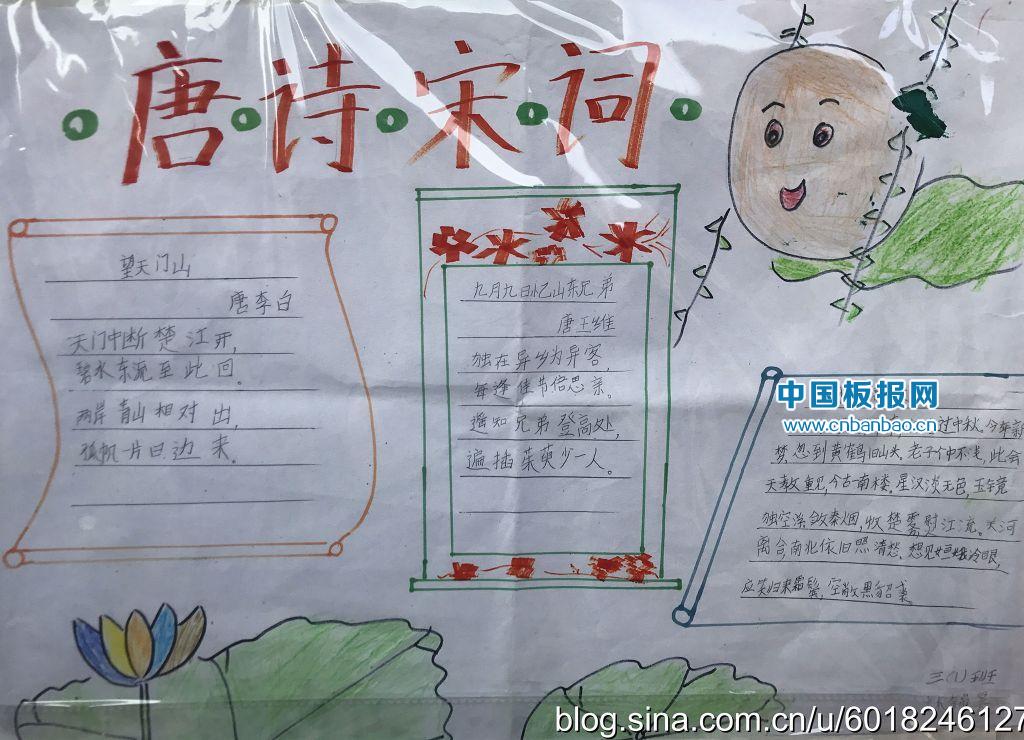 唐诗宋词
望天门山
唐李白
天门中断楚江开，
碧水东流至此回。
两岸青山相对出，
孤帆一片日边来。
九月九日忆山东兄弟
唐王维
独在异乡为异客，
每逢佳节倍思亲。
遥知兄弟登高处，
遍插茱萸少一人。
中国板报网
www.cnbanbao.cn
过中秋。今年新
梦，忽到黄鹤旧山头。老子个中不浅，此会
天教重见，今古一南楼。星汉淡无色，玉镜
独空浮。敛秦烟，收楚雾，熨江流。关河
离合南北依旧照清愁。想见姮娥冷眼，
应笑归来霜鬓，空敝黑貂裘。
三（1）班
blog.sina.com.cn/u/6018246127